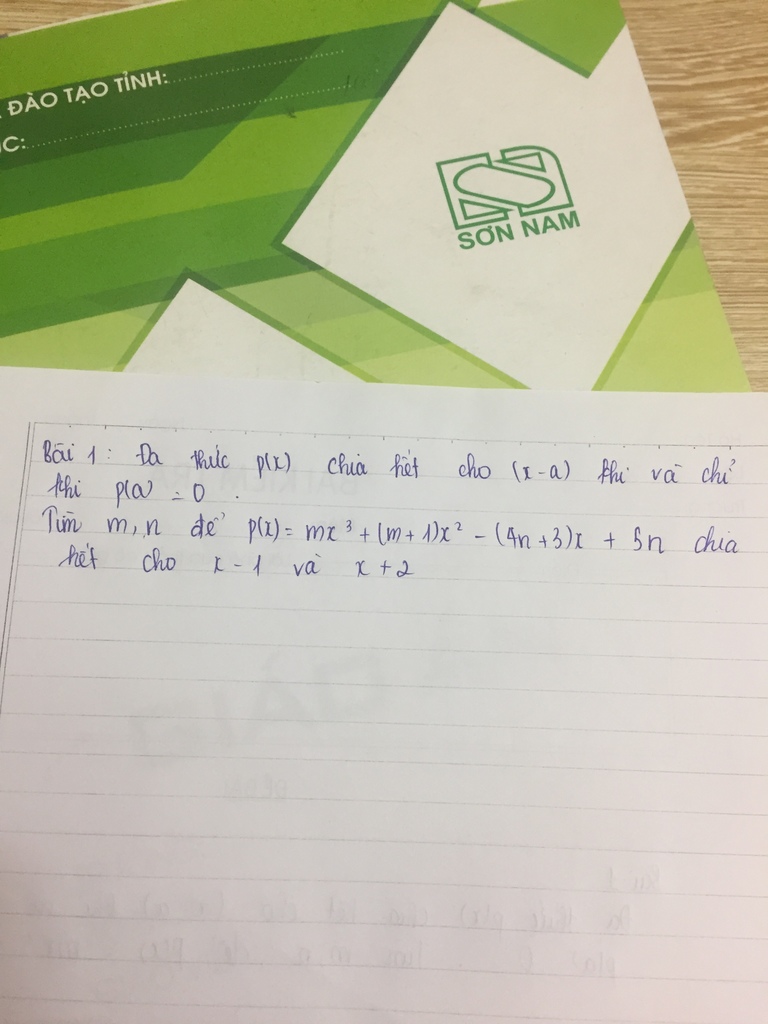 ĐÀO TẠO TỈNH:
SƠN NAM
Bài 1: Đa thức p(x) chia hết cho (x-a) khi và chỉ
khi p(a) = 0.
Tìm m, n để p(x) = mx³ + (m+1)x² - (4n+3)x + 5n chia
hết cho x-1 và x+2